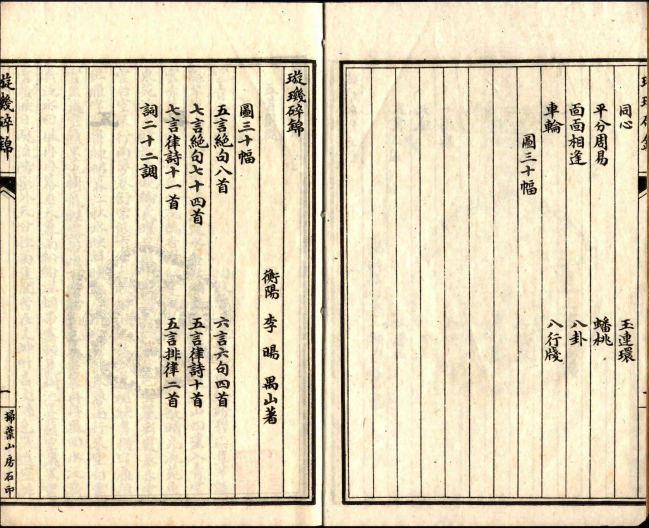 璇璣碎錦
同心
玉連環
平分周易
蟠桃
面面相逢
八卦
車輪
八行牋
圖三十幅
璇璣碎錦
衡陽 李暘 禺山著
圖三十幅
五言絕句八首
六言六句四首
七言絕句七十四首
五言律詩十首
七言律詩十一首
五言排律二首
詞二十二調
璇璣碎錦
一
掃葉山房石印